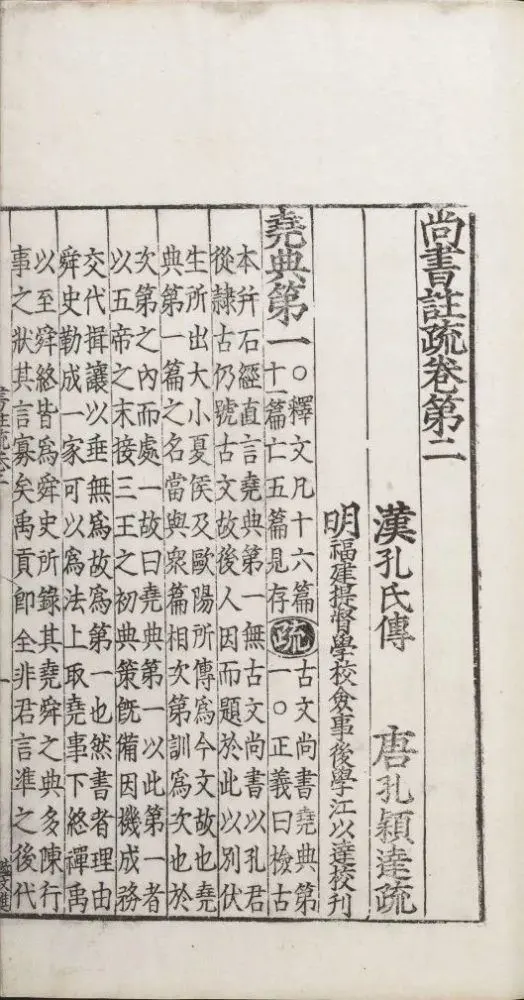 尚書註疏卷第二
漢孔氏傳 唐孔穎達疏
明福建提督學校僉事後學江以達校刊
堯典第一 〇釋文凡十六篇十一篇亡五篇見存 疏 古文尚書堯典第一〇正義曰檢古
本并石經直言堯典第一無古文尚書以孔君
從隷古仍號古文故後人因而題於此以別伏
生所出大小夏侯及歐陽所傳爲今文故也堯
典第一篇之名當與衆篇相次第訓爲次也於
次第之內而處一故曰堯典第一以此第一者
以五帝之末接三王之初典策旣備因機成務
交代揖讓以垂無爲故爲第一也然書者理由
舜史勒成一家可以爲法上取堯事下終禪禹
以至舜終皆爲舜史所錄其堯舜之典多陳行
事之狀其言寡矣禹貢卽全非君言準之後代
書註疏卷二
一